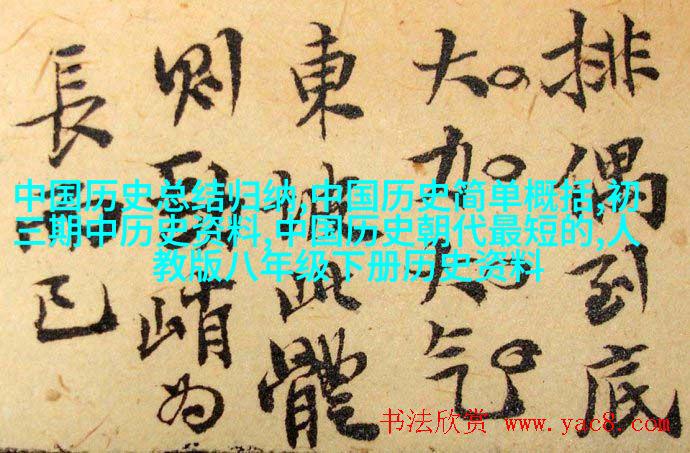 排偶到底
大。加大气。
東坡此體
则峭为
長已
中国历史总结归纳,中国历史简单概括,初
三期中历史资料,中国历史朝代最短的,人
教版八年级下册历史资料
书法欣赏 www.yac8.com